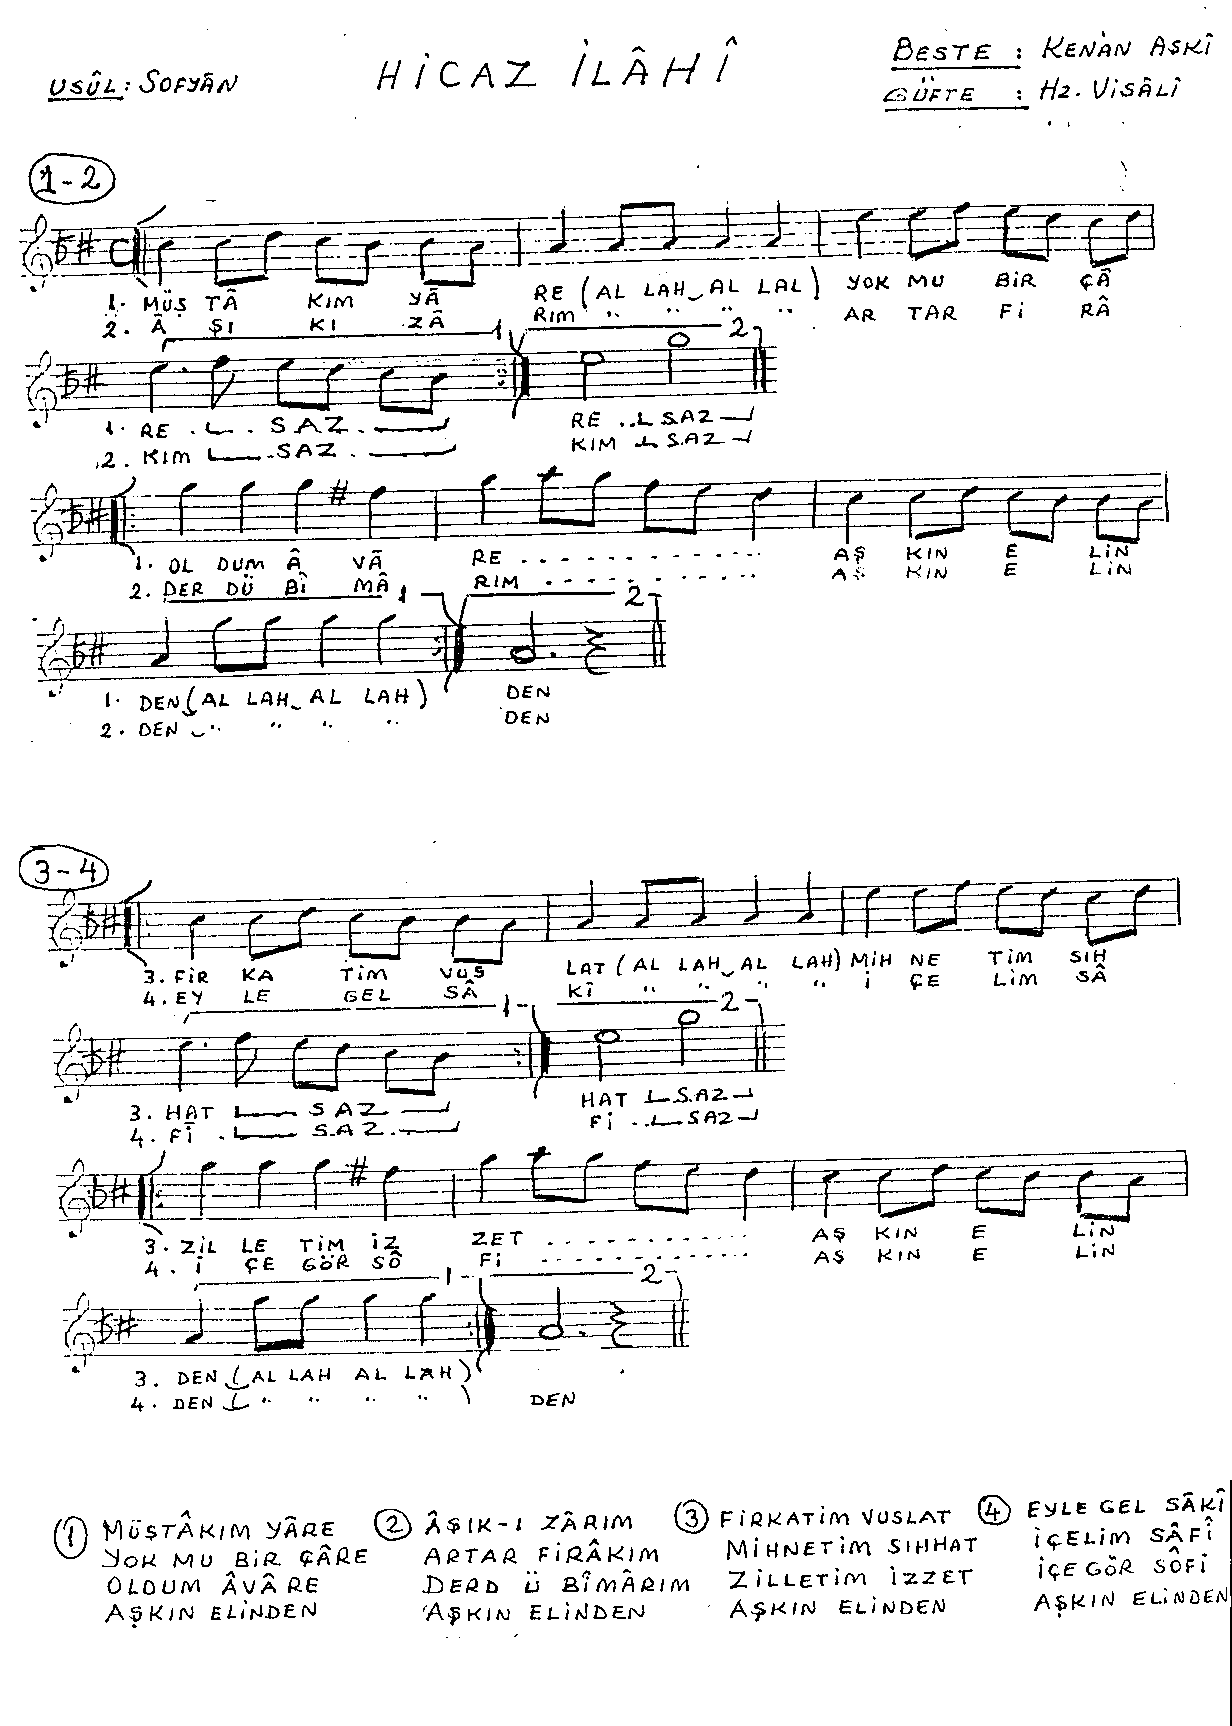 USÛL: SOFYÂN
HİCAZ İLÂHÎ
BESTE : KENÂN ASKÎ
GÜFTE : HZ. VİSÂLİ
1-2
1. MÜŞ TÂ KIM YÂ RE (AL LAH AL LAL) YOK MU BİR ÇÂ
2. Â ŞI KI ZÂ RIM " " " " AR TAR Fİ RÂ
1 2
1. RE . . SAZ . RE .. SAZ
2. KIM . SAZ . KIM SAZ
1. OL DUM Â VÂ RE . . . . . . . . . . . AŞ KIN E LİN
2. DER DÜ BÎ MÂ RIM . . . . . . . . . . . AŞ KIN E LİN
1 2
1. DEN (AL LAH AL LAH) DEN
2. DEN " " " " DEN
3-4
3. FİR KA TİM VUS LAT (AL LAH AL LAH) MİH NE TİM SIH
4. EY LE GEL SÂ KÎ " " " " İ ÇE LİM SÂ
1 2
3. HAT SAZ HAT SAZ
4. FÎ . SAZ . Fİ .. SAZ
3. ZİL LE TİM İZ ZET . . . . . . . . . . . AŞ KIN E LİN
4. İ ÇE GÖR SÔ Fİ . . . . . . . . . . . AŞ KIN E LİN
1 2
3. DEN (AL LAH AL LAH)
4. DEN ( " " " " ) DEN
1 MÜŞTÂKIM YÂRE
YOK MU BİR ÇÂRE
OLDUM ÂVÂRE
AŞKIN ELİNDEN
2 ÂŞIK-I ZÂRIM
ARTAR FİRÂKIM
DERD Ü BÎMÂRIM
AŞKIN ELİNDEN
3 FİRKATİM VUSLAT
MİHNETİM SIHHAT
ZİLLETİM İZZET
AŞKIN ELİNDEN
4 EYLE GEL SÂKÎ
İÇELİM SÂFÎ
İÇE GÖR SÔFİ
AŞKIN ELİNDEN